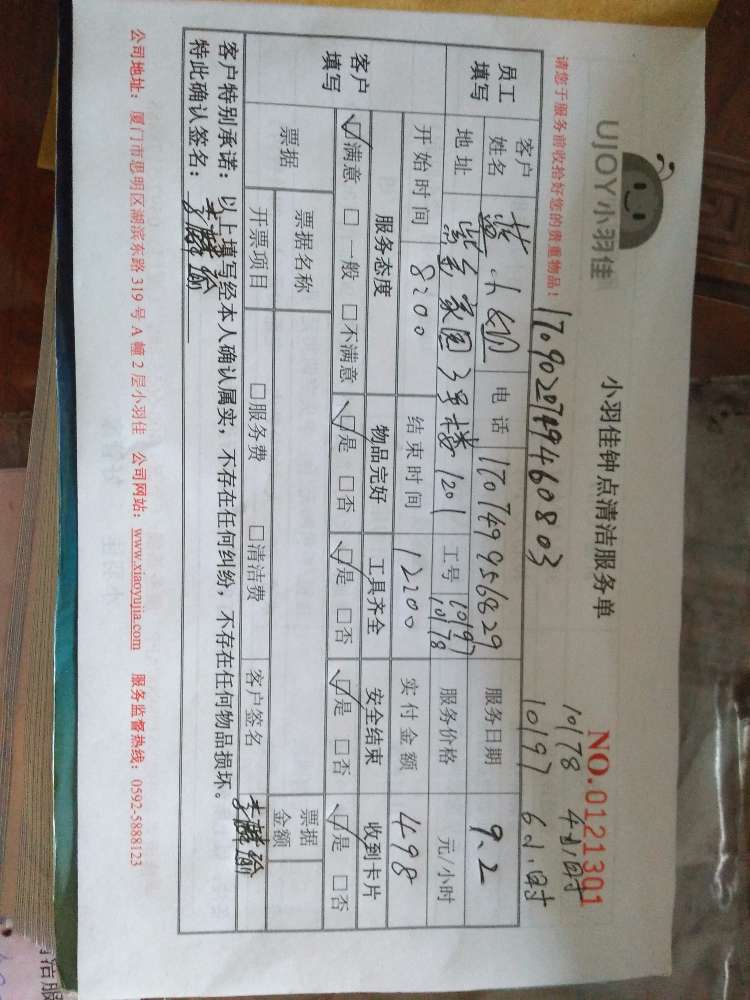 UJOY小羽佳
小羽佳钟点清洁服务单
NO.0121301
请您于服务前收拾好您的贵重物品！
10178 4小时
10197 6小时
员工填写
客户姓名 小姐 电话 服务日期 9.2
地址 紫金家园3号楼1201 工号 10197 10178 服务价格 元/小时
开始时间 8:00 结束时间 12:00 实付金额 498
客户填写
服务态度 物品完好 工具齐全 安全结束 收到卡片
☑满意 □一般 □不满意 ☑是 □否 ☑是 □否 ☑是 □否 ☑是 □否
票据 票据名称 票据金额
开票项目 □服务费 □清洁费 客户签名
客户特别承诺：以上填写经本人确认属实，不存在任何纠纷，不存在任何物品损坏。
特此确认签名：
公司地址：厦门市思明区湖滨东路319号A幢2层小羽佳 公司网站：www.xiaoyujia.com 服务监督热线：0592-5888123